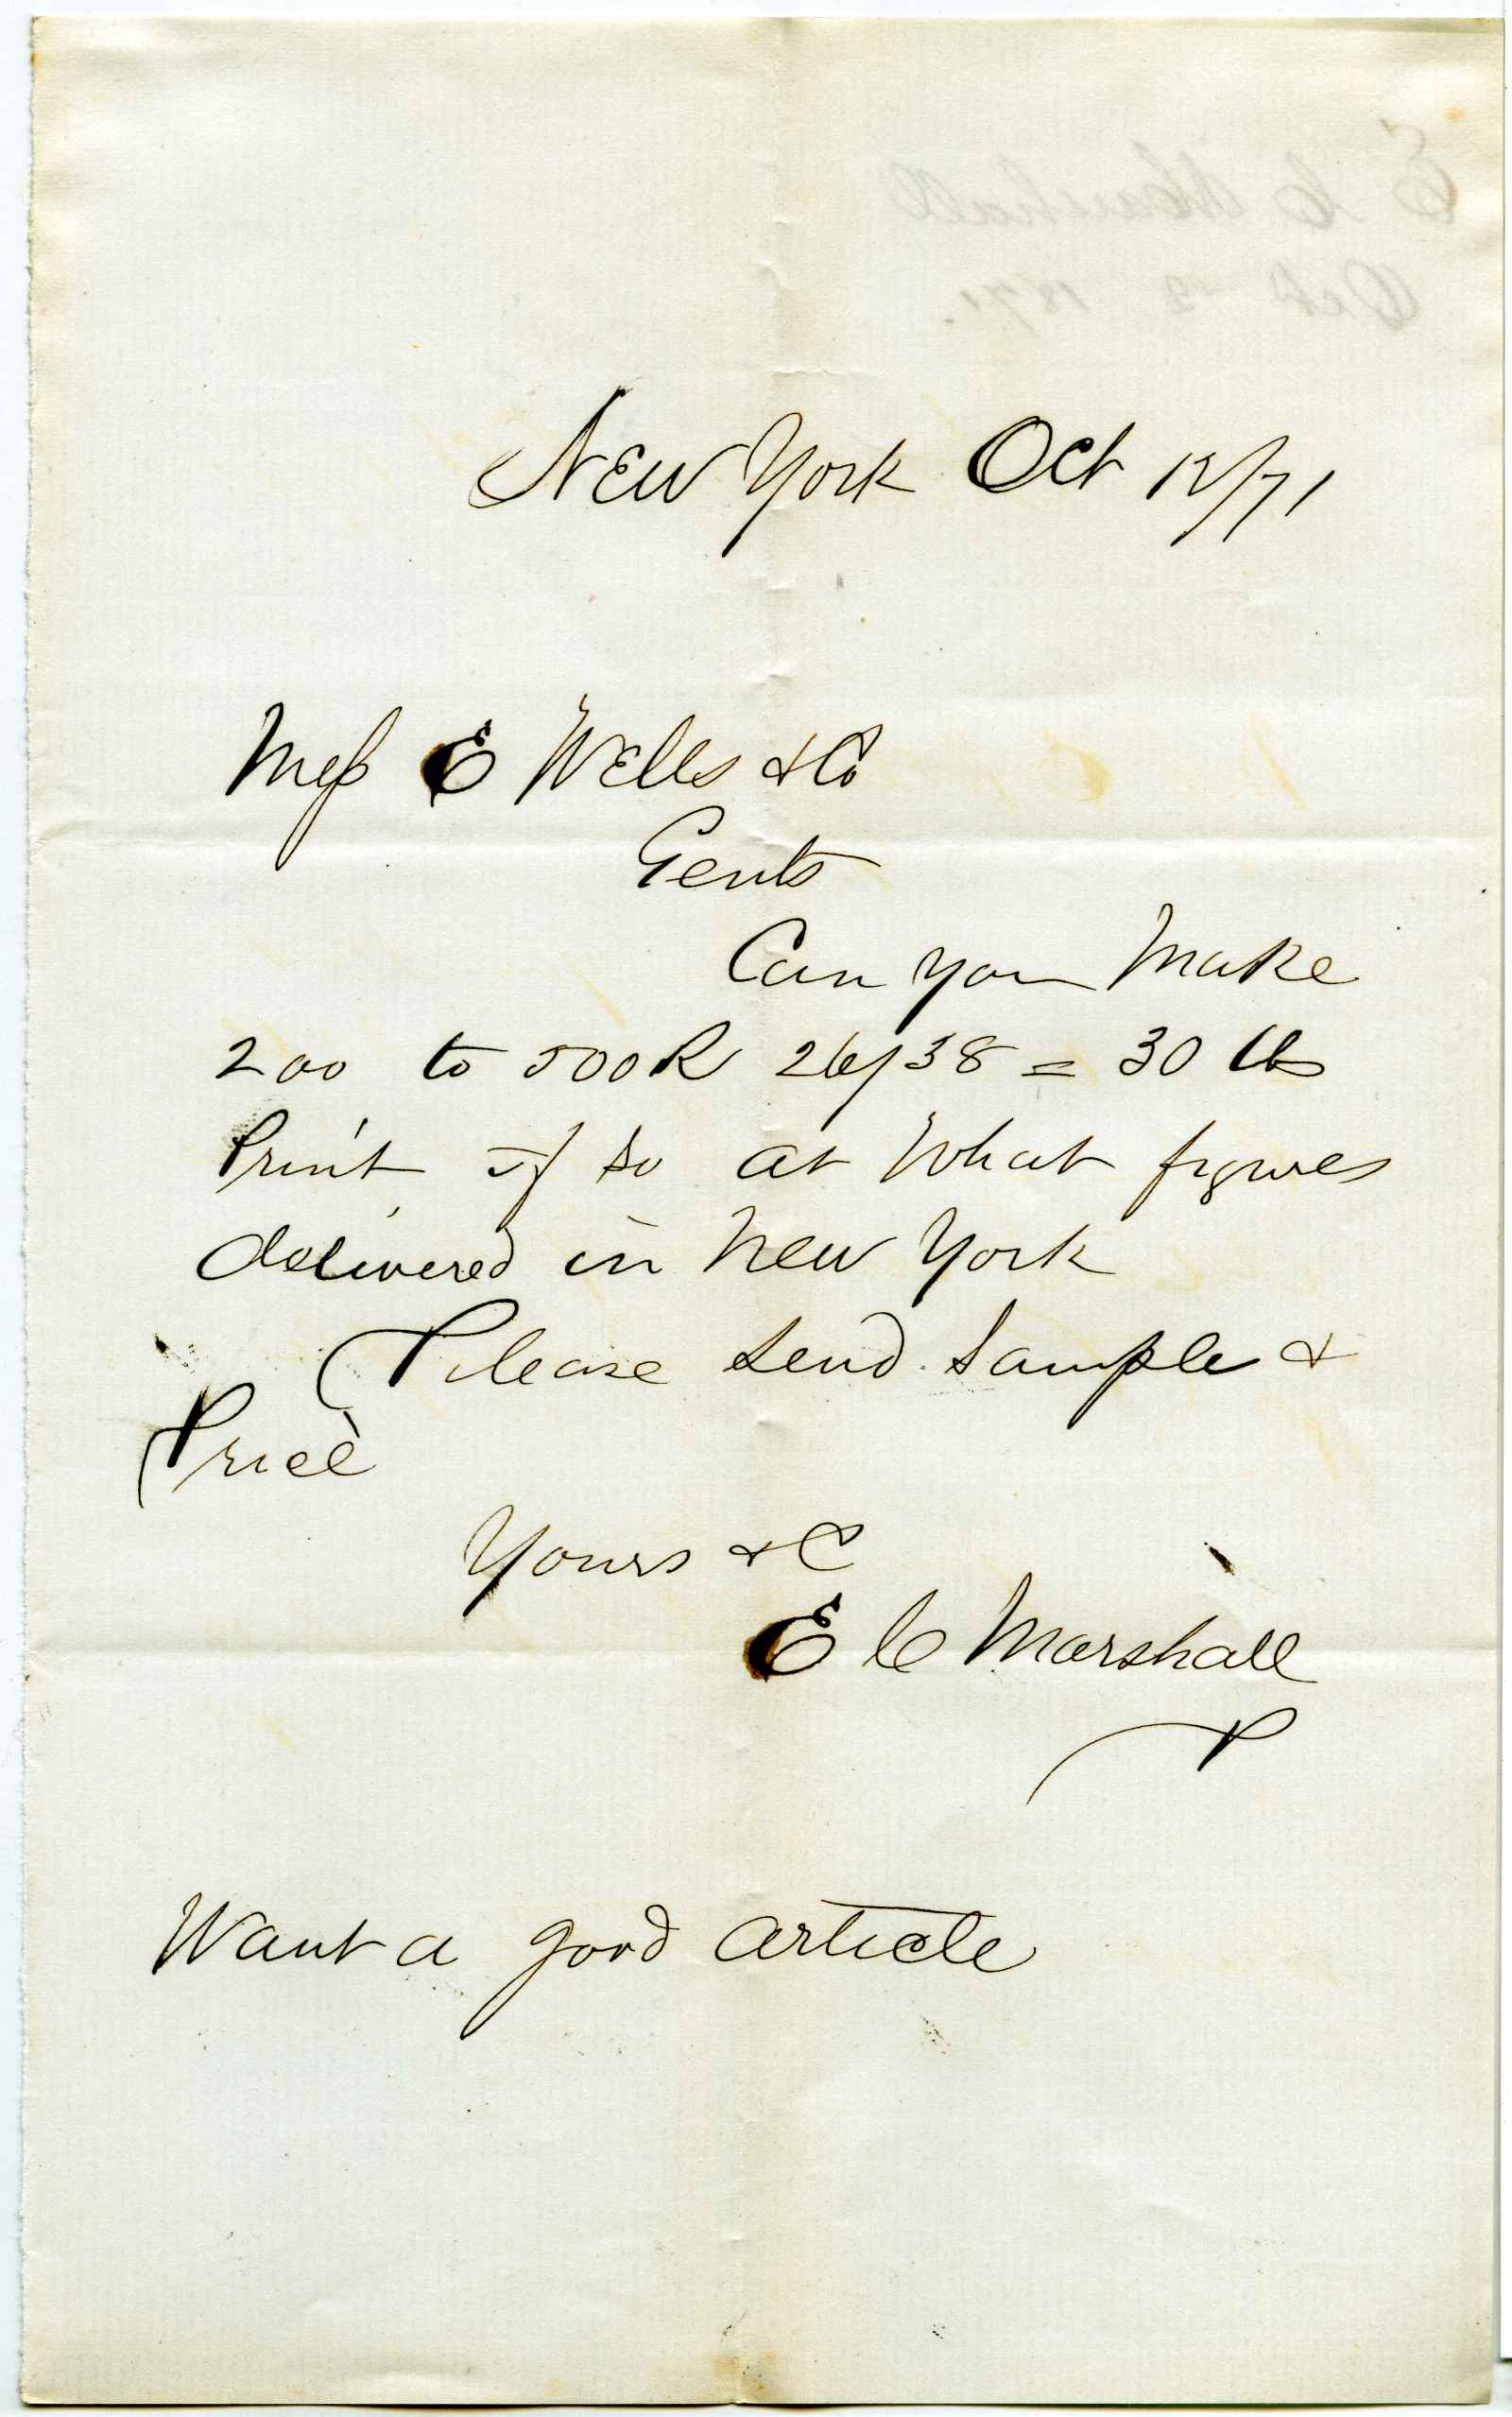 New York Oct 12/71
Mess E Wells & Co
Gents
Can you Make
200 to 500 R 26/38 = 30 lbs
Print if so at What figures
delivered in New York
Please send Sample &
Price
Yours &C
E C Marshall
Want a good article